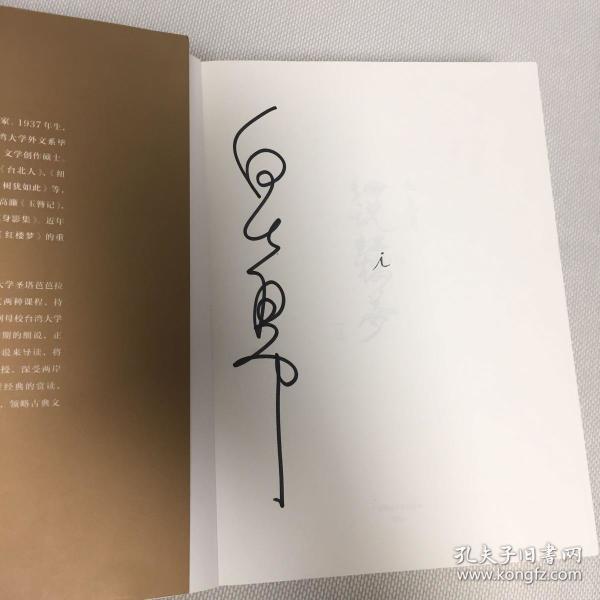 家。1937年生,
湾大学外文系毕
文学创作硕士。
《台北人》、《纽
树犹如此》等,
高濂《玉簪记》、
身影集》。近年
《红楼梦》的重
大学圣塔芭芭拉
两种课程,持
母校台湾大学
期的细说,正
说来导读,将
授,深受两岸
经典的赏读,
,领略古典文
白先勇
i
说红楼梦
孔夫子旧书网
www.kongfz.com